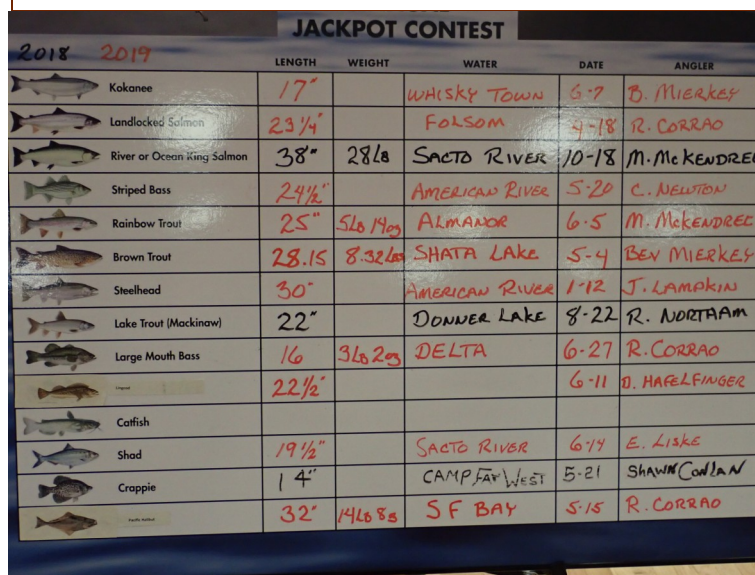 JACKPOT CONTEST
2018 2019
LENGTH WEIGHT WATER DATE ANGLER
Kokanee 17" WHISKY TOWN 6-7 B. MIERKEY
Landlocked Salmon 23 1/4" FOLSOM 4-18 R. CORRAO
River or Ocean King Salmon 38" 28LB SACTO RIVER 10-18 M. McKENDREE
Striped Bass 24 1/2" AMERICAN RIVER 5-20 C. NEWTON
Rainbow Trout 25" 5LB 14oz ALMANOR 6-5 M. McKENDREE
Brown Trout 28.15 8.32Lbs SHATA LAKE 5-4 BEV MIERKEY
Steelhead 30" AMERICAN RIVER 1-12 J. LAMPKIN
Lake Trout (Mackinaw) 22" DONNER LAKE 8-22 R. NORTHAM
Large Mouth Bass 16 3LB 2oz DELTA 6-27 R. CORRAO
22 1/2" 6-11 D. HAFELFINGER
Catfish
Shad 19 1/2" SACTO RIVER 6-14 E. LISKE
Crappie 14" CAMP FAR WEST 5-21 SHAWN CONLAN
Pacific Halibut 32" 14LB 8oz SF BAY 5-15 R. CORRAO